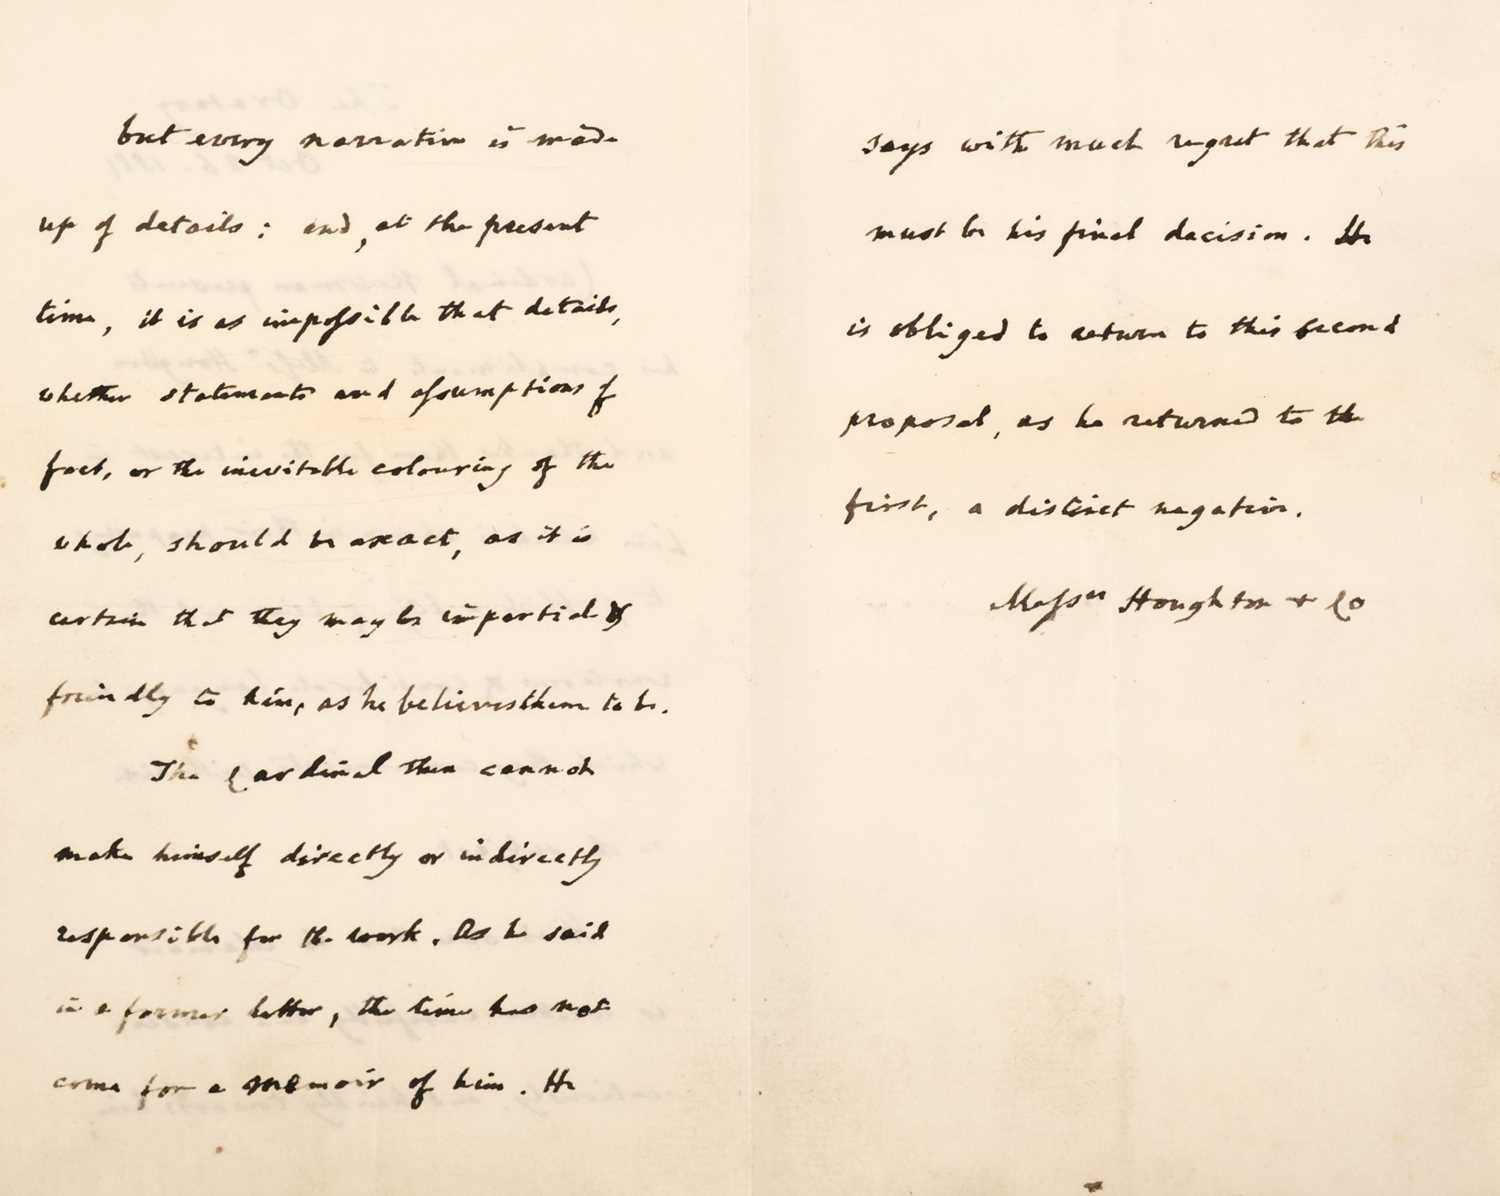 but every narrative is made
up of details: and, at the present
time, it is as impossible that details,
whether statements and assumptions of
fact, or the inevitable colouring of the
whole, should be exact, as it is
certain that they may be impartial &
friendly to him, as he believes them to be.
The Cardinal then cannot
make himself directly or indirectly
responsible for the work. As he said
in a former letter, the time has not
come for a memoir of him. He
says with much regret that this
must be his final decision. He
is obliged to return to this second
proposal, as he returned to the
first, a distinct negative.
Messrs Houghton + Co